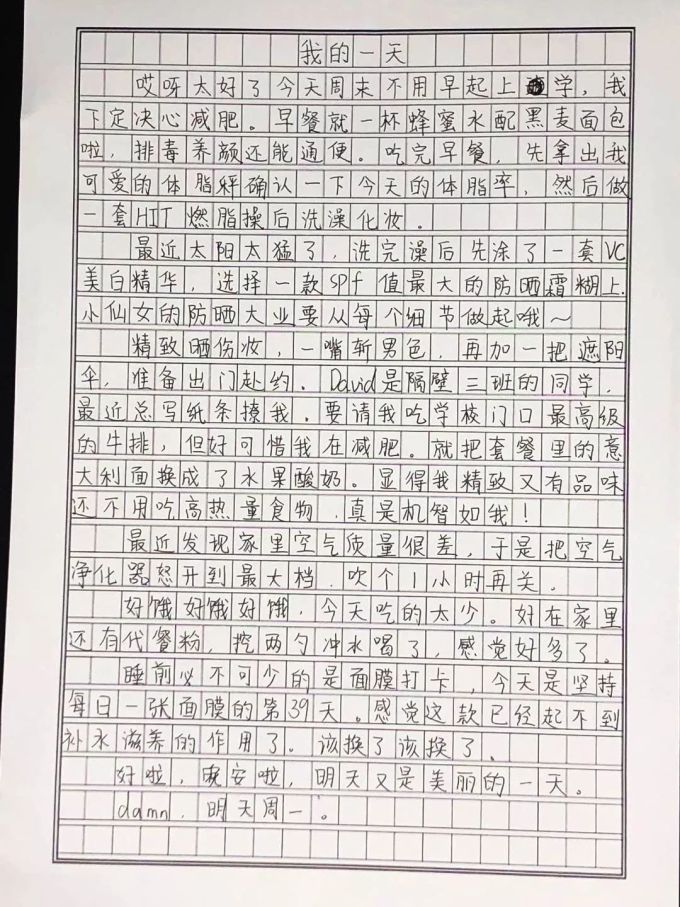 我的一天
哎呀太好了今天周末不用早起上学，我
下定决心减肥。早餐就一杯蜂蜜水配黑麦面包
啦，排毒养颜还能通便。吃完早餐，先拿出我
可爱的体脂秤确认一下今天的体脂率，然后做
一套HIT燃脂操后洗澡化妆。
最近太阳太猛了，洗完澡后先涂了一套VC
美白精华，选择一款spf值最大的防晒霜糊上.
小仙女的防晒大业要从每个细节做起哦～
精致晒伤妆，一嘴斩男色，再加一把遮阳
伞，准备出门赴约。David是隔壁三班的同学，
最近总写纸条撩我。要请我吃学校门口最高级
的牛排，但好可惜我在减肥。就把套餐里的意
大利面换成了水果酸奶。显得我精致又有品味
还不用吃高热量食物，真是机智如我！
最近发现家里空气质量很差，于是把空气
净化器怒开到最大档，吹个1小时再关。
好饿好饿好饿，今天吃的太少。好在家里
还有代餐粉，挖两勺冲水喝了，感觉好多了。
睡前必不可少的是面膜打卡，今天是坚持
每日一张面膜的第39天。感觉这款已经起不到
补水滋养的作用了。该换了该换了、
好啦，晚安啦，明天又是美丽的一天。
damn，明天周一。